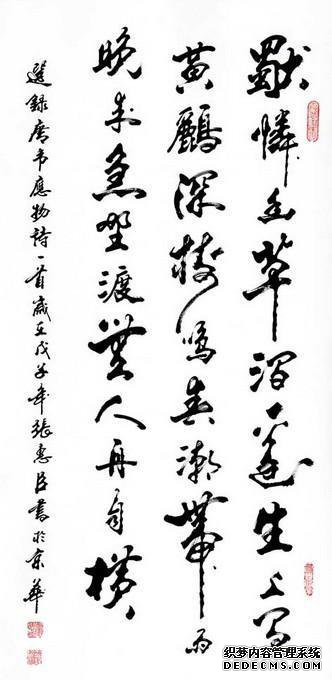 獨憐幽草澗邊生上有
黃鸝深樹鳴春潮帶雨
晚来急野渡無人舟自橫
選錄唐韦應物詩一首歲在戊子年張惠臣書於京華
织梦内容管理系统
DEDECMS.COM